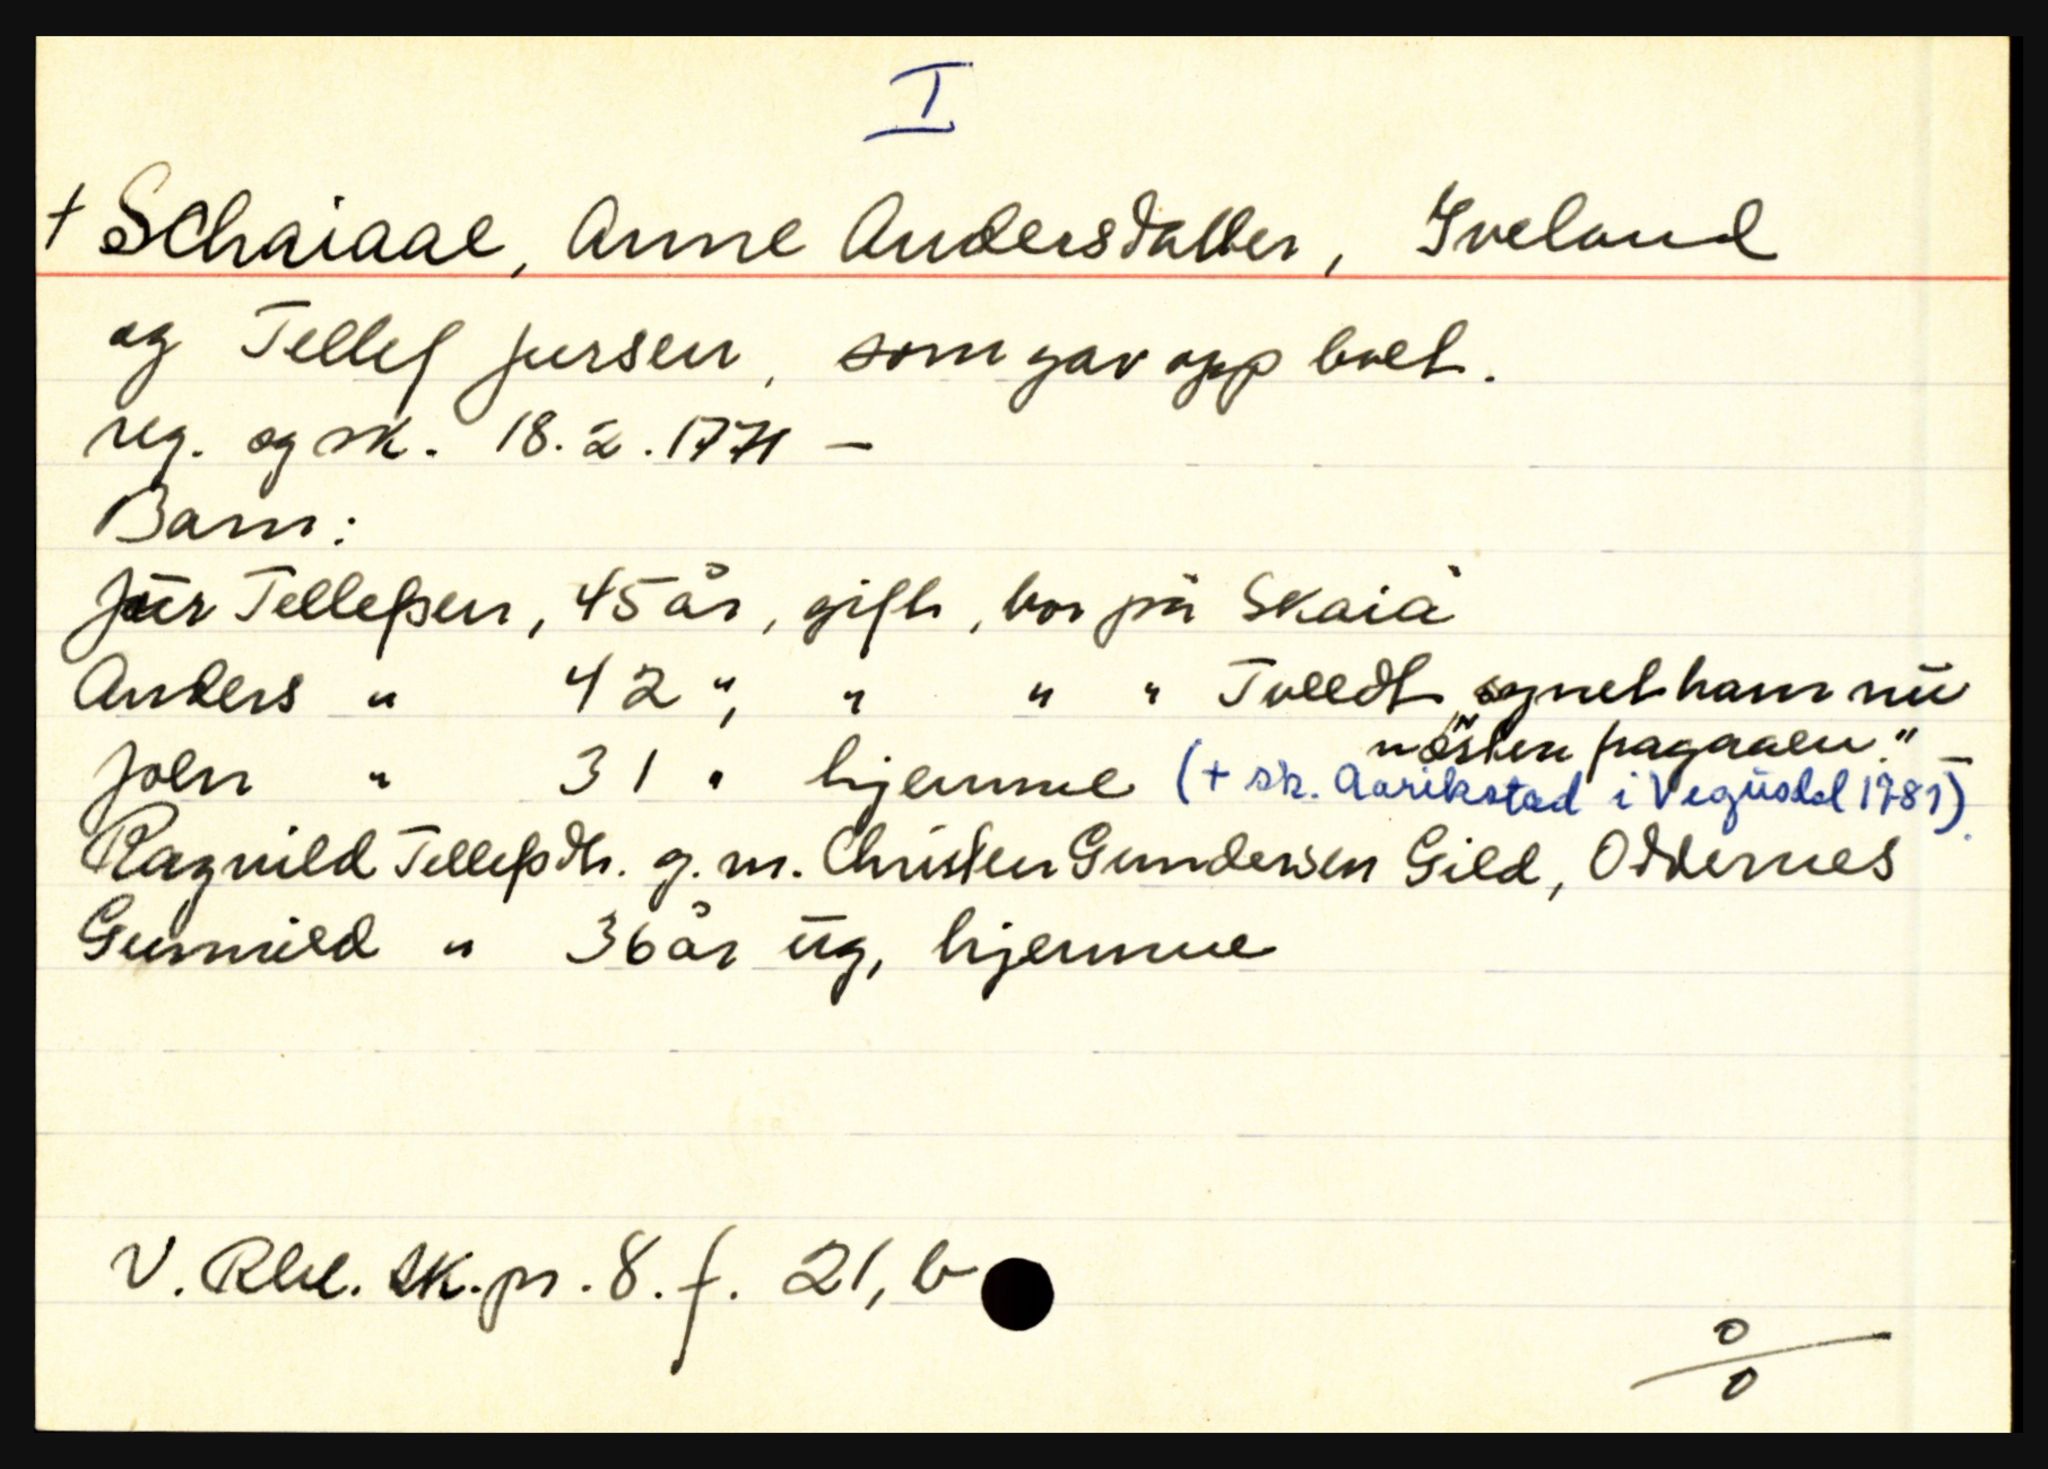 I
+ Schaiaae, Anne Andersdatter, Iveland
og Tellef Jursen, som gav opp boet.
reg. og sk. 18.2.1771 –
Barn:
Jur Tellefsen, 45 år, gift, bor på Skaiå
Anders " 42 ", " " " Tveedt synet ham nu
"næsten fragaaen." –
Joen " 31 " hjemme (+ sk. Aarikstad i Vegusdal 1781).
Ragnild Tellefsdtr. g. m. Christen Gundersen Gild, Oddernes
Gunnild " 36 år ug, hjemme
V. Rbl. sk. pr. 8. f. 21, b
0/0